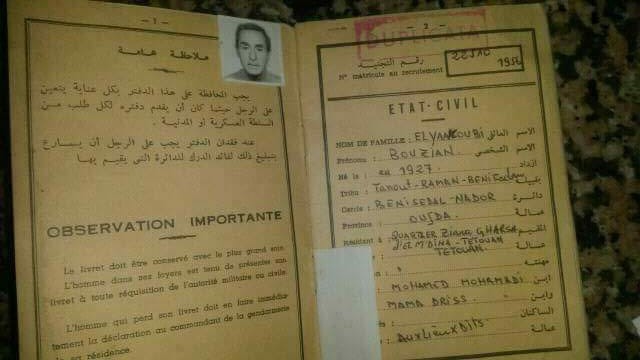 - 1 -
ملاحظة عامة
يجب المحافظة على هذا الدفتر بكل عناية يتعين
على الرجل حيثما كان أن يقدم دفتره لكل طلب من
السلطة العسكرية أو المدنية .
عند فقدان الدفتر يجب على الرجل أن يسارع
بتبليغ ذلك لقائد الدرك للدائرة التي يقيم بها
OBSERVATION IMPORTANTE
Le livret doit être conservé avec le plus grand soin.
L'homme dans ses foyers est tenu de présenter son
livret à toute réquisition de l'autorité militaire ou civile.
L'homme qui perd son livret doit en faire immédia-
tement la déclaration au commandant de la gendarmerie
sa résidence.
- 2 -
DUPLICATA
رقم التجنيد
N° matricule au recrutement
1956
ETAT-CIVIL
NOM DE FAMILLE : ELYANCOUBI الاسم العائلي
Prénoms : BOUZIAN. الاسم الشخصي
Né le : en 1927 ازداد
Tribu : Tanout-RAMAN-BENI قبيلة
Cercle : BENISEDAL-NADOR دائرة
Province : OUJDA. عمالة
Résidant à : QUARTIER ZIANA GHARSA المقيم
D'EL M'DINA-TETOUAN
TETOUAN. عمالة
مهنته
MOHAMED MOHAMADI ابن
MAMA DRISS. وابن
الساكنان
AUX LIEUX DITS عمالة